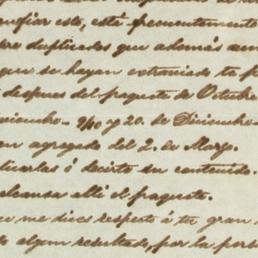 confiar esto, está frecuentemente
duplicados que además
que se hayan extraviado te p
despues del paquete de Octubre
9/10 y 20. de Diciembre
agregado del 2. de Marzo.
ó decirte su contenido.
alcansa allí el paquete.
me dices respecto á tu gran
algun resultado, por la pers